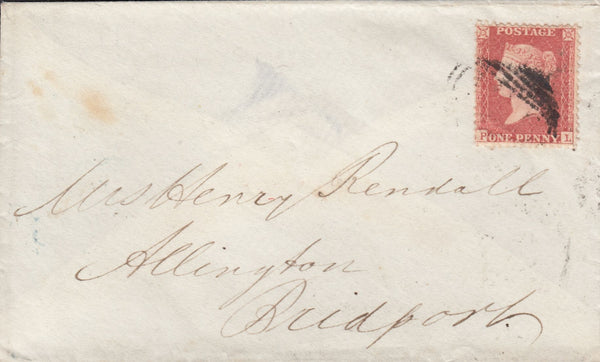 POSTAGE
P ONE PENNY L
Mrs Henry Rendall
Allington
Bridport